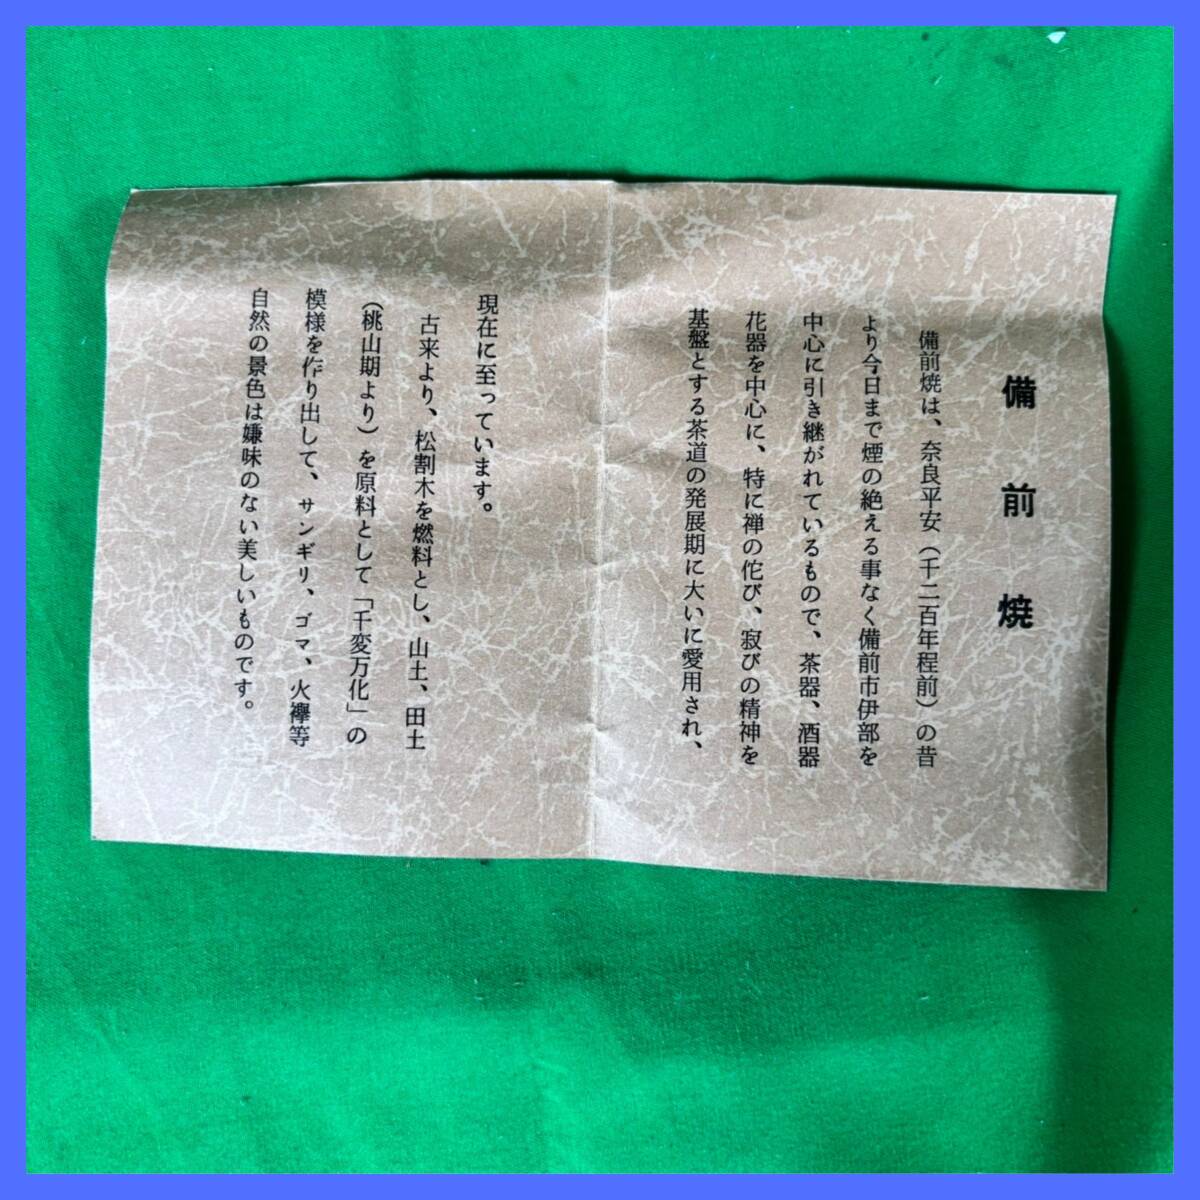 備前焼
備前焼は、奈良平安（千二百年程前）の昔
より今日まで煙の絶える事なく備前市伊部を
中心に引き継がれているもので、茶器、酒器
花器を中心に、特に禅の侘び、寂びの精神を
基盤とする茶道の発展期に大いに愛用され、
現在に至っています。
古来より、松割木を燃料とし、山土、田土
（桃山期より）を原料として「千変万化」の
模様を作り出して、サンギリ、ゴマ、火襷等
自然の景色は嫌味のない美しいものです。